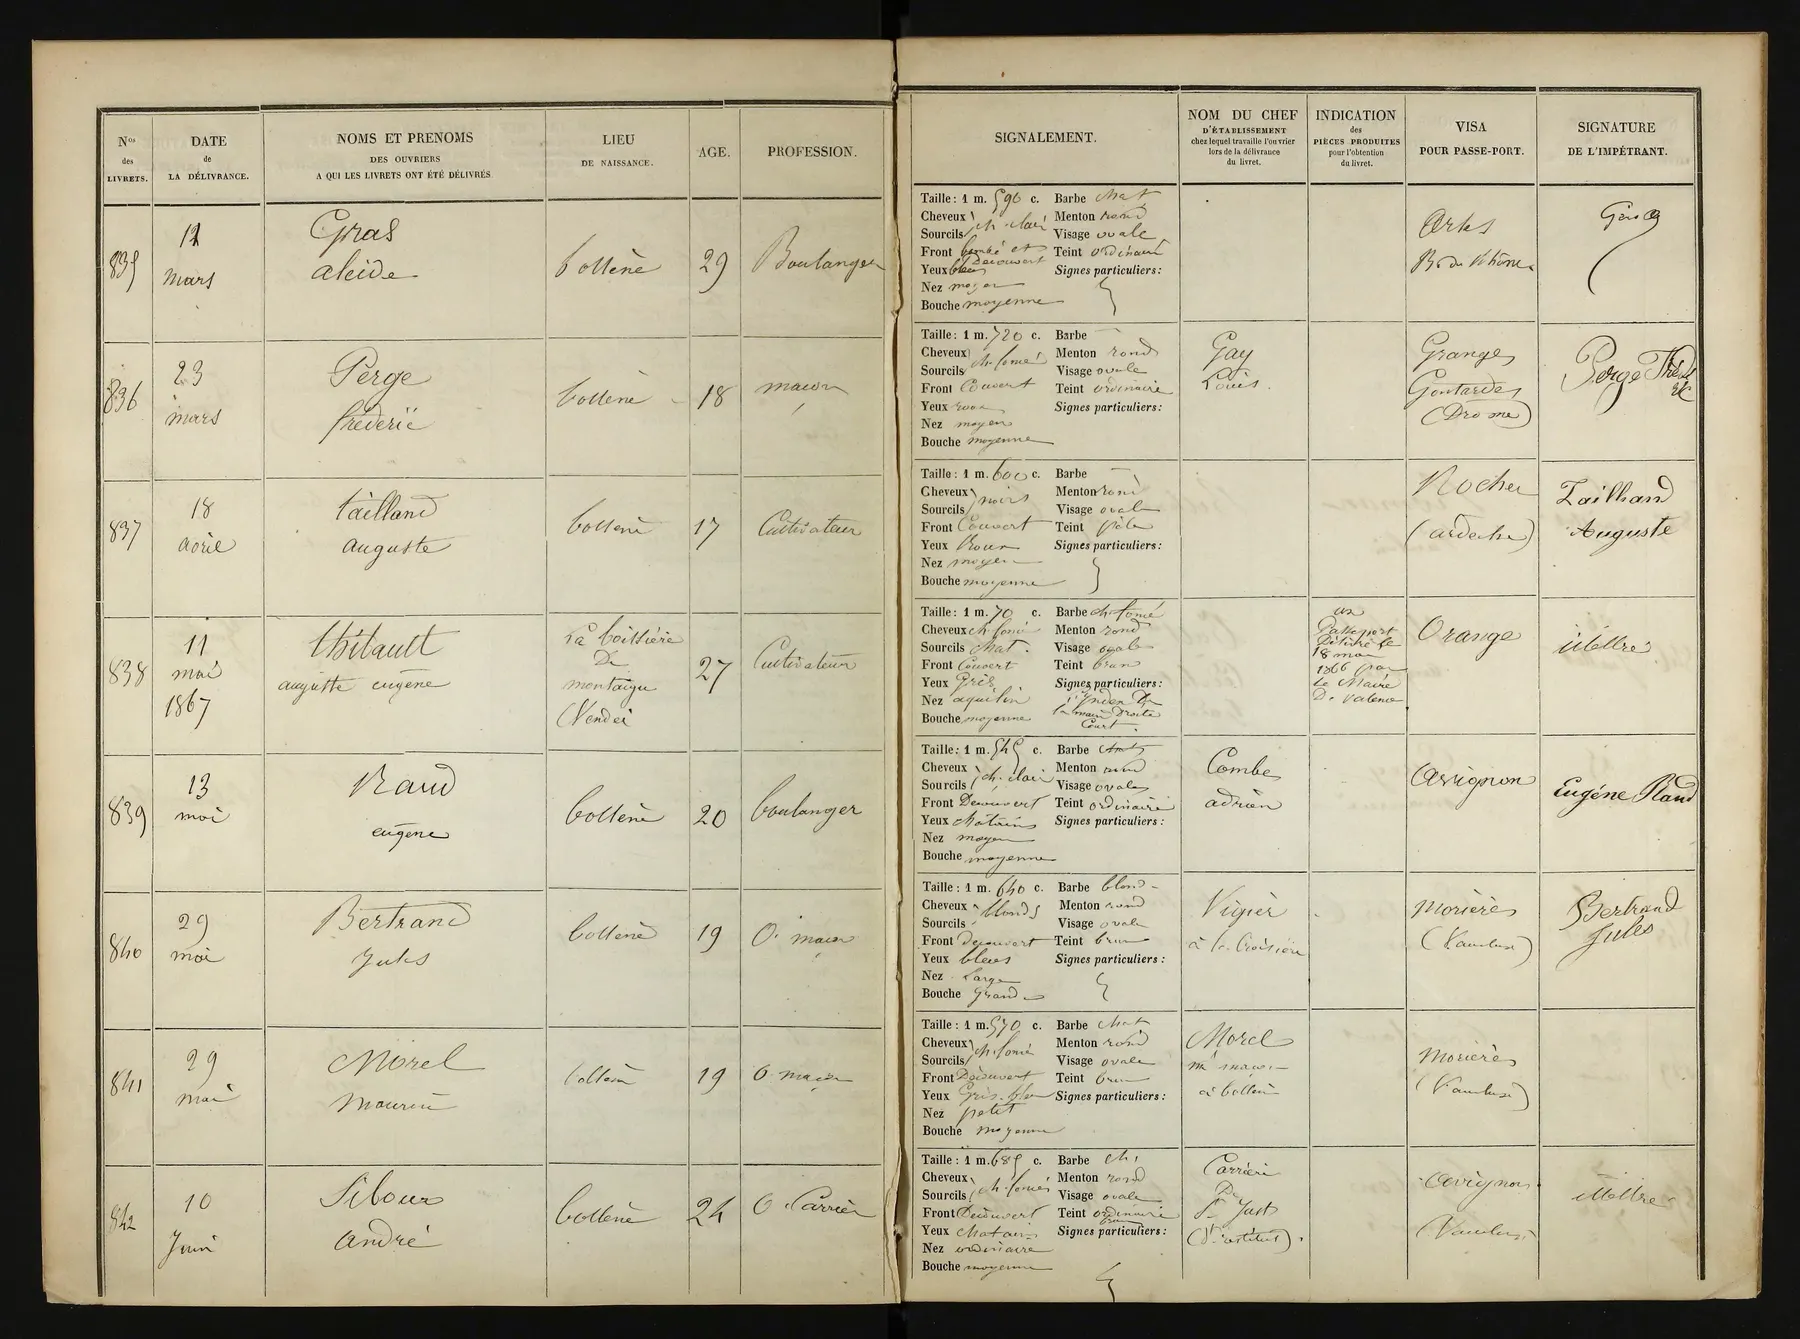 Nos
des
LIVRETS.
DATE
de
LA DÉLIVRANCE.
NOMS ET PRENOMS
DES OUVRIERS
A QUI LES LIVRETS ONT ÉTÉ DÉLIVRÉS
LIEU
DE NAISSANCE.
AGE.
PROFESSION.
SIGNALEMENT.
NOM DU CHEF
D'ÉTABLISSEMENT
chez lequel travaille l'ouvrier
lors de la délivrance
du livret.
INDICATION
des
PIÈCES PRODUITES
pour l'obtention
du livret.
VISA
POUR PASSE-PORT.
SIGNATURE
DE L'IMPÉTRANT.
835
12
mars
Gras
alcide
bollène
29
Boulanger
Taille: 1 m. 590 c. Barbe chat
Cheveux ch. clair Menton rond
Sourcils Visage ovale
Front bombé et Decouvert Teint ordinaire
Yeux bleus Signes particuliers:
Nez moyen
Bouche moyenne
Arles
B. du Rhône
Gras
836
23
mars
Perge
fréderic
bollène
18
macon
Taille: 1 m. 720 c. Barbe
Cheveux ch. foncé Menton rond
Sourcils Visage ovale
Front Couvert Teint ordinaire
Yeux roux Signes particuliers:
Nez moyen
Bouche moyenne
Gay
Louis.
Granges
Gontardes
(Drome)
Perge
837
18
avril
tailland
auguste
bollène
17
Cultivateur
Taille: 1 m. 600 c. Barbe
Cheveux noirs Menton rond
Sourcils Visage ovale
Front Couvert Teint pâle
Yeux Roux Signes particuliers:
Nez moyen
Bouche moyenne
Rocher
(ardeche)
Tailhand
Auguste
838
11
mai
1867
thibault
auguste eugène
La boissière
De
montaigu
(Vendei
27
Cultivateur
Taille: 1 m. 70 c. Barbe ch. foncé
Cheveux ch. foncé Menton rond
Sourcils chat. Visage ovale
Front Couvert Teint brun
Yeux Gris Signes particuliers:
Nez aquilin l'index De
Bouche moyenne la main Droite
Court.
un
Passeport
Délivré le
18 mai
1866 par
le Maire
De Valence
Orange
illettré
839
13
mai
Raud
eugène
bollène
20
boulanger
Taille: 1 m. 545 c. Barbe chat
Cheveux ch. clair Menton rond
Sourcils Visage ovale
Front Decouvert Teint ordinaire
Yeux chatains Signes particuliers:
Nez moyen
Bouche moyenne
Combe
adrien
avignon
Eugéne Raud
840
29
mai
Bertrand
Jules
bollène
19
O. macon
Taille: 1 m. 640 c. Barbe blond
Cheveux blonds Menton rond
Sourcils Visage ovale
Front decouvert Teint brun
Yeux bleus Signes particuliers:
Nez Large
Bouche Grande
Vigier
à la Croisière
morières
(Vaucluse)
Bertrand
Jules
841
29
mai
Morel
maurin
bollène
19
O macon
Taille: 1 m. 570 c. Barbe chat
Cheveux ch. foncé Menton rond
Sourcils Visage ovale
Front Découvert Teint brun
Yeux Gris-bleu Signes particuliers:
Nez petit
Bouche moyenne
Morel
me macon
à bollène
morières
(Vaucluse)
842
10
Juin
Sibour
André
bollène
24
O. Carrier
Taille: 1 m. 685 c. Barbe ch.
Cheveux ch. foncés Menton rond
Sourcils Visage ovale
Front Découvert Teint ordinaire
brun
Yeux chatain Signes particuliers:
Nez ordinaire
Bouche moyenne
Carrière
De
St Just
avignon
(Vaucluse)
illettré